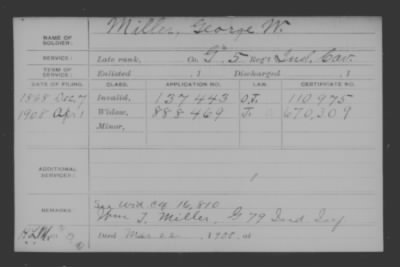 NAME OF SOLDIER: Miller, George W.
SERVICE: Late rank, Co. G. 5 Reg't Ind. Cav.
TERM OF SERVICE: Enlisted , 1 Discharged , 1
DATE OF FILING. CLASS. APPLICATION NO. LAW. CERTIFICATE NO.
1868 Dec. 7 Invalid, 137443 O.L. 110975
1908 Apr 1 Widow, 888469 670,309
Minor,
ADDITIONAL SERVICES:
REMARKS: See Wid. 16,810
Wm T. Miller, G 79 Ind Inf
Died Mar 22, 1908, at